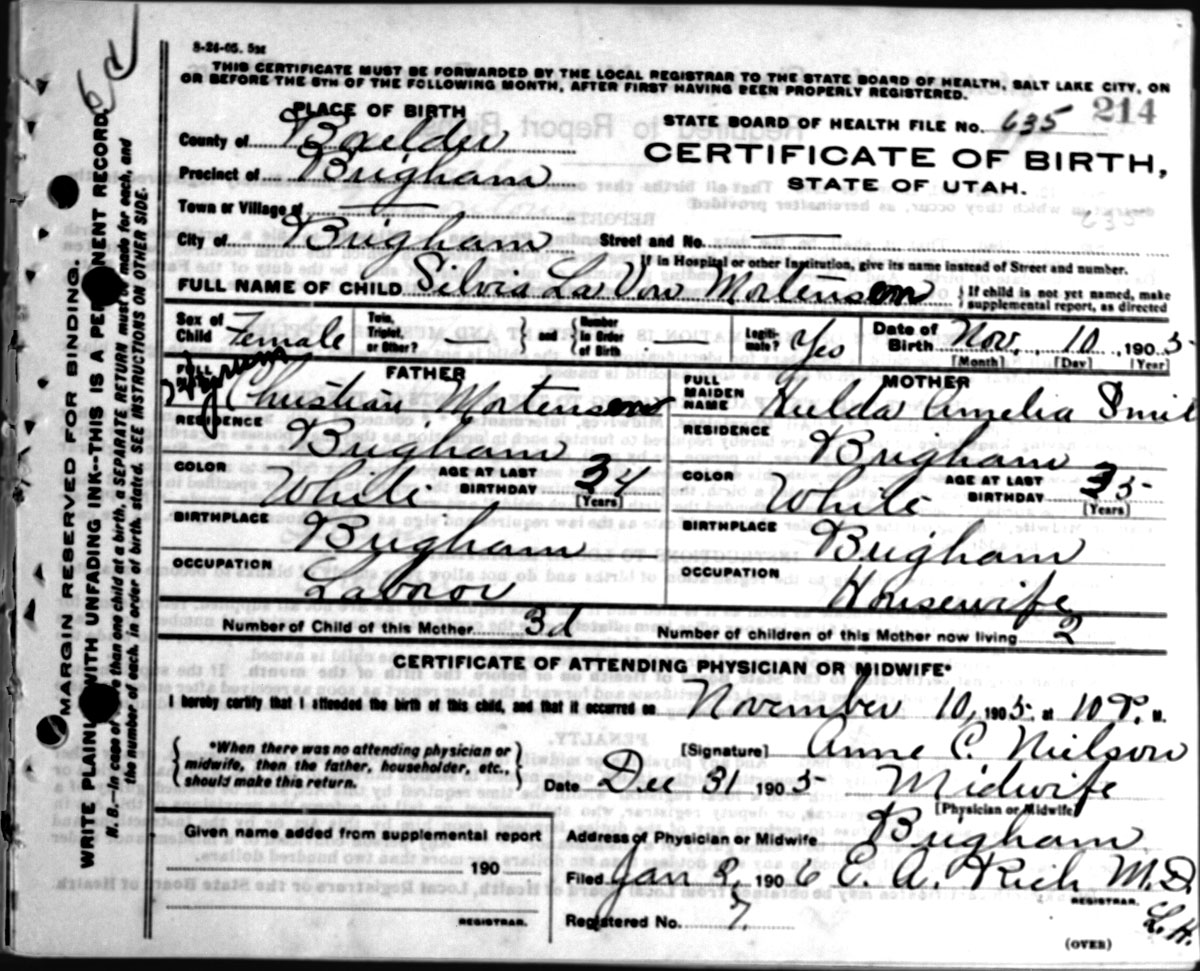 8-24-05. 5M
THIS CERTIFICATE MUST BE FORWARDED BY THE LOCAL REGISTRAR TO THE STATE BOARD OF HEALTH, SALT LAKE CITY, ON
OR BEFORE THE 5TH OF THE FOLLOWING MONTH, AFTER FIRST HAVING BEEN PROPERLY REGISTERED.
PLACE OF BIRTH
STATE BOARD OF HEALTH FILE No. 635 214
County of Boxelder
CERTIFICATE OF BIRTH,
STATE OF UTAH.
Precinct of Brigham
Town or Village of —
City of Brigham Street and No. —
If in Hospital or other Institution, give its name instead of Street and number.
FULL NAME OF CHILD Silvia La Von Mortensen } If child is not yet named, make supplemental report, as directed
Sex of Child Female Twin, Triplet, or Other? — } and { Number in Order of Birth — Legitimate? Yes Date of Birth Nov. 10, 1905
[Month] [Day] [Year]
FATHER
FULL Christian Mortensen
RESIDENCE Brigham
COLOR White AGE AT LAST BIRTHDAY 34 [Years]
BIRTHPLACE Brigham
OCCUPATION Labror
MOTHER
FULL MAIDEN NAME Hulda Amelia
RESIDENCE Brigham
COLOR White AGE AT LAST BIRTHDAY 35 [Years]
BIRTHPLACE Brigham
OCCUPATION Housewife
Number of Child of this Mother 3d Number of children of this Mother now living 2
CERTIFICATE OF ATTENDING PHYSICIAN OR MIDWIFE*
I hereby certify that I attended the birth of this child, and that it occurred on November 10, 1905 at 10 P. M.
{ *When there was no attending physician or midwife, then the father, householder, etc., should make this return. }
[Signature] Anne C. Nielson
Date Dec 31 1905 Midwife
[Physician or Midwife]
Given name added from supplemental report
190
REGISTRAR.
Address of Physician or Midwife Brigham
Filed Jan 2, 1906 E. A. Rich M.D.
REGISTRAR.
L.H.
Registered No. 7
(OVER)
MARGIN RESERVED FOR BINDING.
WRITE PLAINLY WITH UNFADING INK--THIS IS A PERMANENT RECORD.
N. B.--In case of more than one child at a birth, a SEPARATE RETURN must be made for each, and
the number of each, in order of birth, stated. SEE INSTRUCTIONS ON OTHER SIDE.